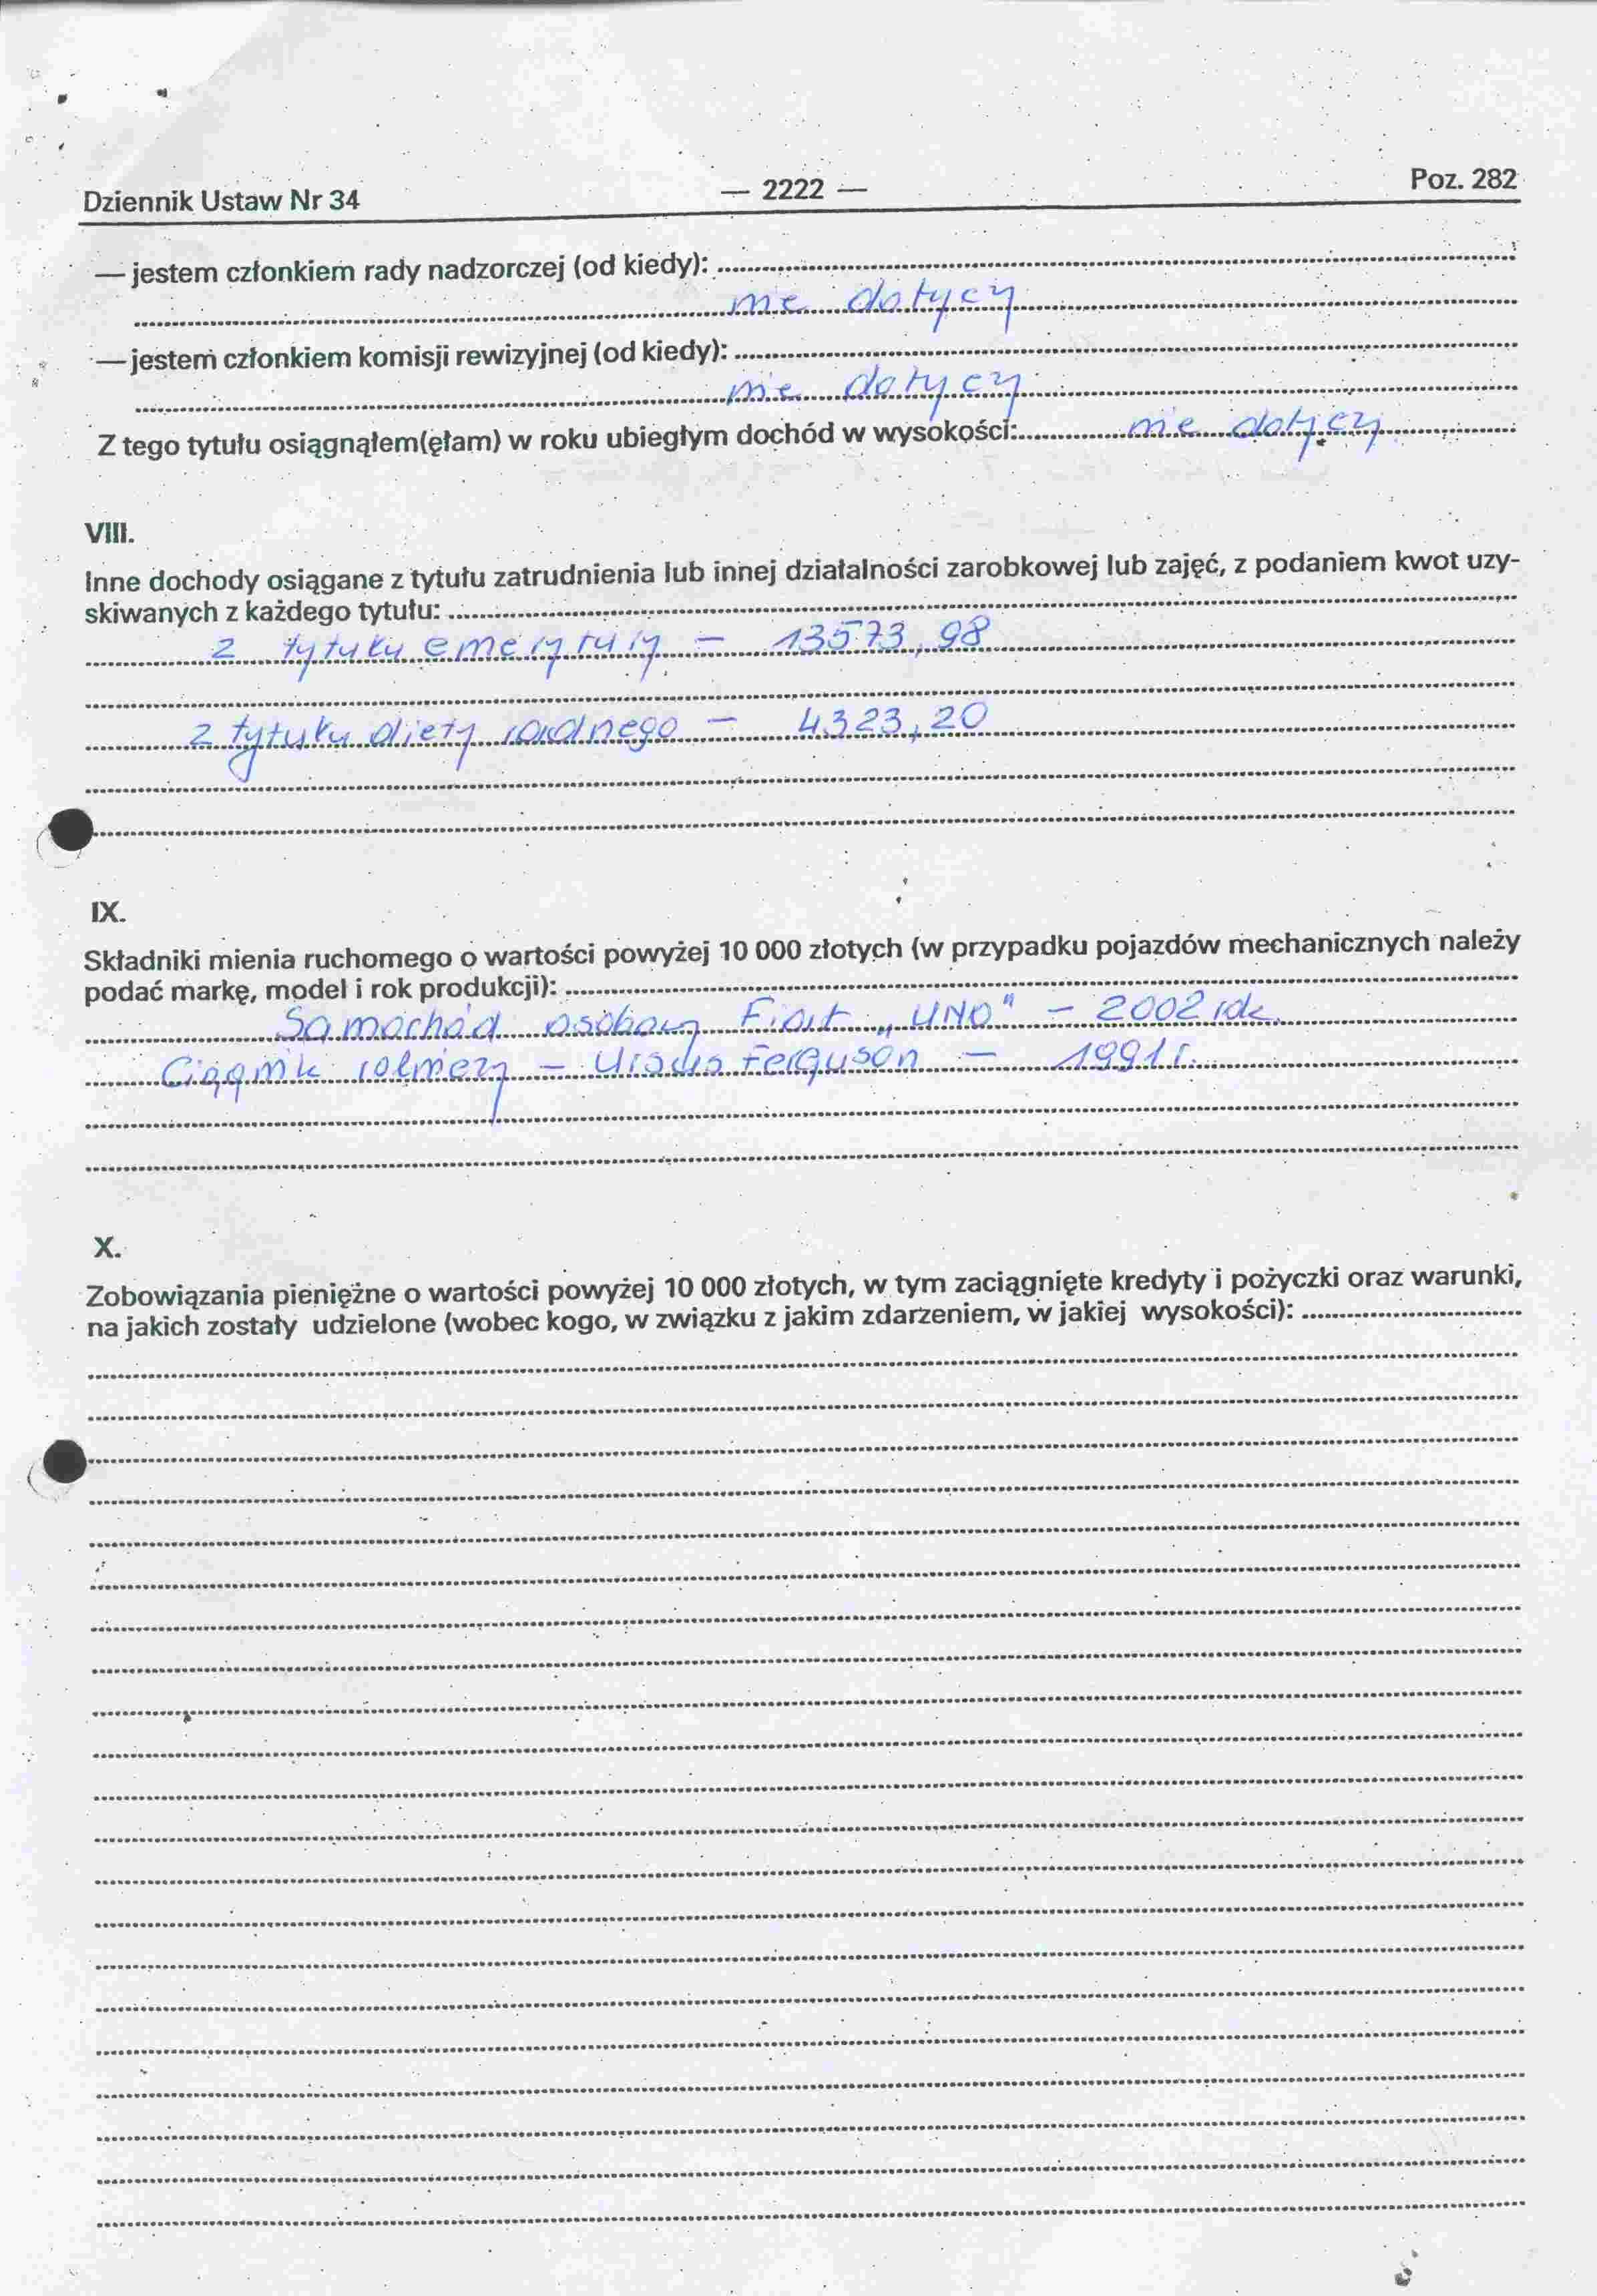 Dziennik Ustaw Nr 34 — 2222 — Poz. 282
— jestem członkiem rady nadzorczej (od kiedy):
nie dotyczy
— jestem członkiem komisji rewizyjnej (od kiedy):
nie dotyczy
Z tego tytułu osiągnąłem(ęłam) w roku ubiegłym dochód w wysokości: nie dotyczy
VIII.
Inne dochody osiągane z tytułu zatrudnienia lub innej działalności zarobkowej lub zajęć, z podaniem kwot uzy-
skiwanych z każdego tytułu:
z tytułu emerytury – 13573,98
z tytułu diety radnego – 4323,20
IX.
Składniki mienia ruchomego o wartości powyżej 10 000 złotych (w przypadku pojazdów mechanicznych należy
podać markę, model i rok produkcji):
Samochód osobowy Fiat „UNO" – 2002 rok.
Ciągnik rolniczy – Ursus Ferguson – 1991 r.
X.
Zobowiązania pieniężne o wartości powyżej 10 000 złotych, w tym zaciągnięte kredyty i pożyczki oraz warunki,
na jakich zostały udzielone (wobec kogo, w związku z jakim zdarzeniem, w jakiej wysokości):